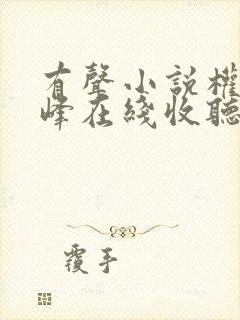 有聲小說權
峰在綫收聽
覆手